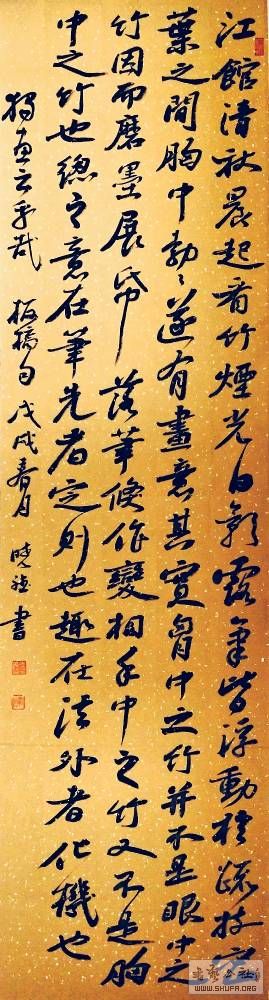 江館清秋晨起看竹煙光日影露氣皆浮動於疏枝密
葉之間胸中勃〻遂有畫意其實胸中之竹并不是眼中之
竹因而磨墨展帋落筆倏作變相手中之竹又不是胸
中之竹也總之意在筆先者定則也趣在法外者化機也
獨畫云乎哉 板橋句 戊戌春月 晓 書
WWW.SHUFA.ORG